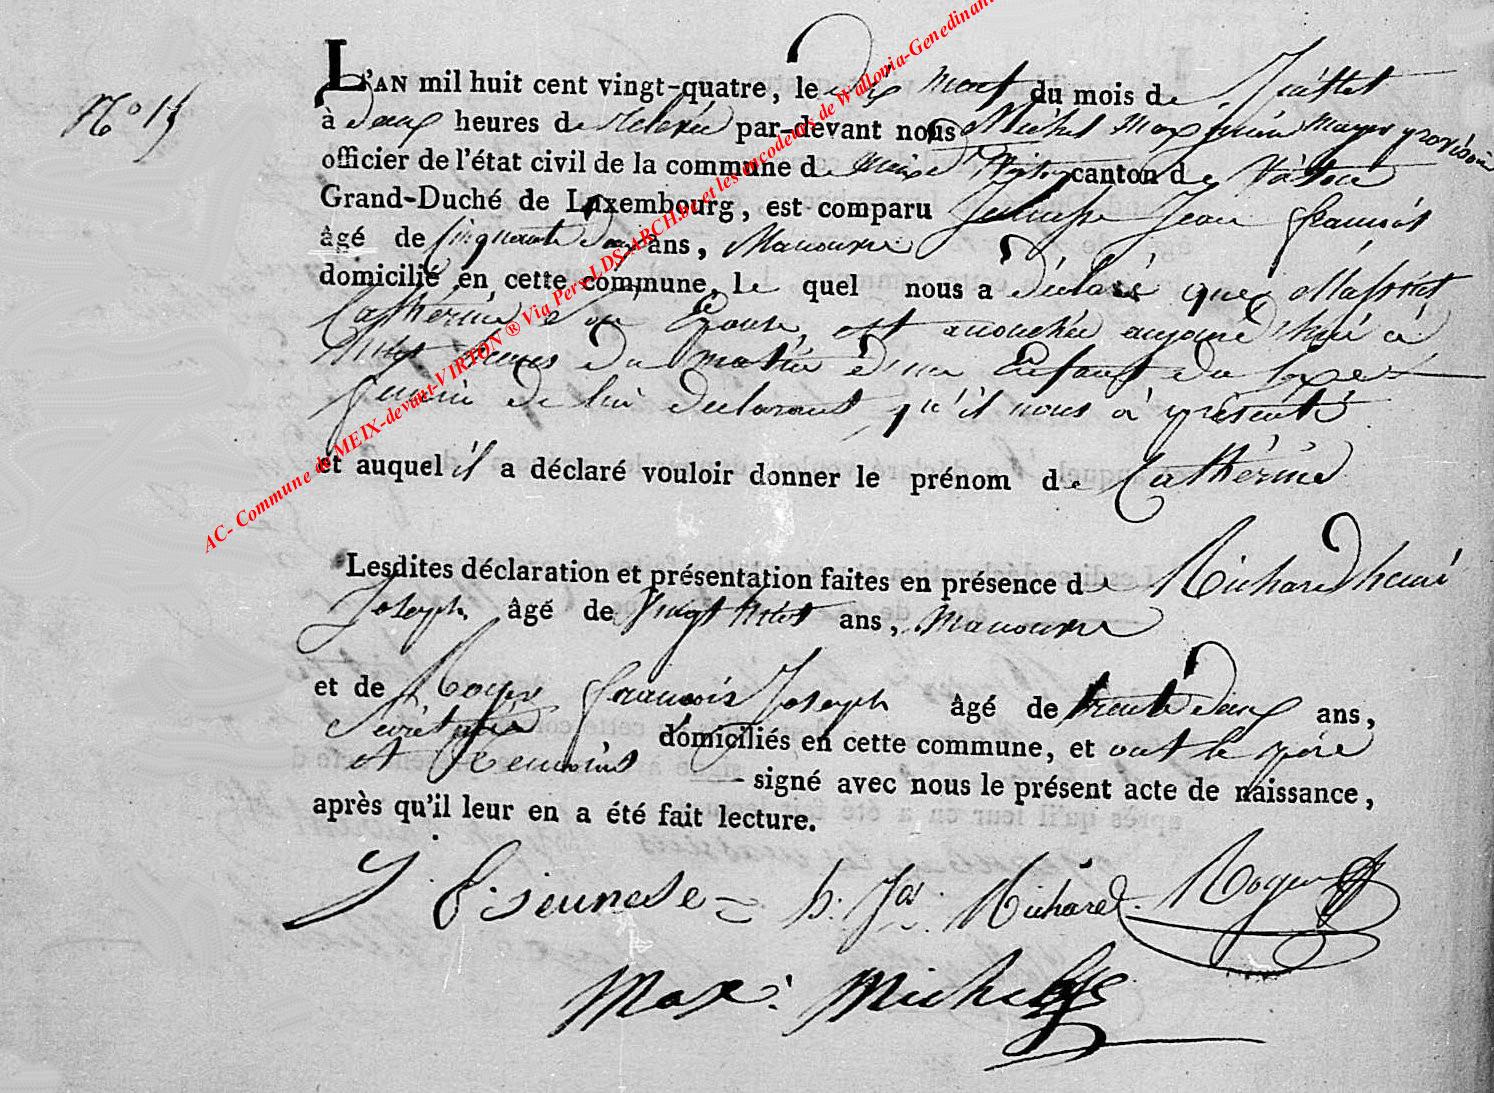 N° 15
L'AN mil huit cent vingt-quatre, le dix neuf du mois de Juillet
à deux heures de relevée par-devant nous Michel Maximin mayeur provisoire
officier de l'état civil de la commune de Meix dt Virton canton de Virton
Grand-Duché de Luxembourg, est comparu Jeunesse Jean françois
âgé de cinquante deux ans, Manouvrier
domicilié en cette commune, le quel nous a déclaré que Massiet
Catherine Son Epouse, est accouchée aujourd'hui à
heures du matin d'un Enfant du sexe
feminin de lui declarant qu'il nous a présenté
et auquel il a déclaré vouloir donner le prénom de Catherine
Lesdites déclaration et présentation faites en présence de Richard henri
Joseph âgé de Vingt huit ans, Manouvrier
et de Roger françois Joseph âgé de trente deux ans,
Secrétaire domiciliés en cette commune, et ont le père
et temoins signé avec nous le présent acte de naissance,
après qu'il leur en a été fait lecture.
J. f. jeunese h. Js. Richard Roger
Max. Michel
AC- Commune de MEIX-devant-VIRTON ® Via Perx-LDS-ARCH.be et les encodeurs de Wallonia-Genedinant